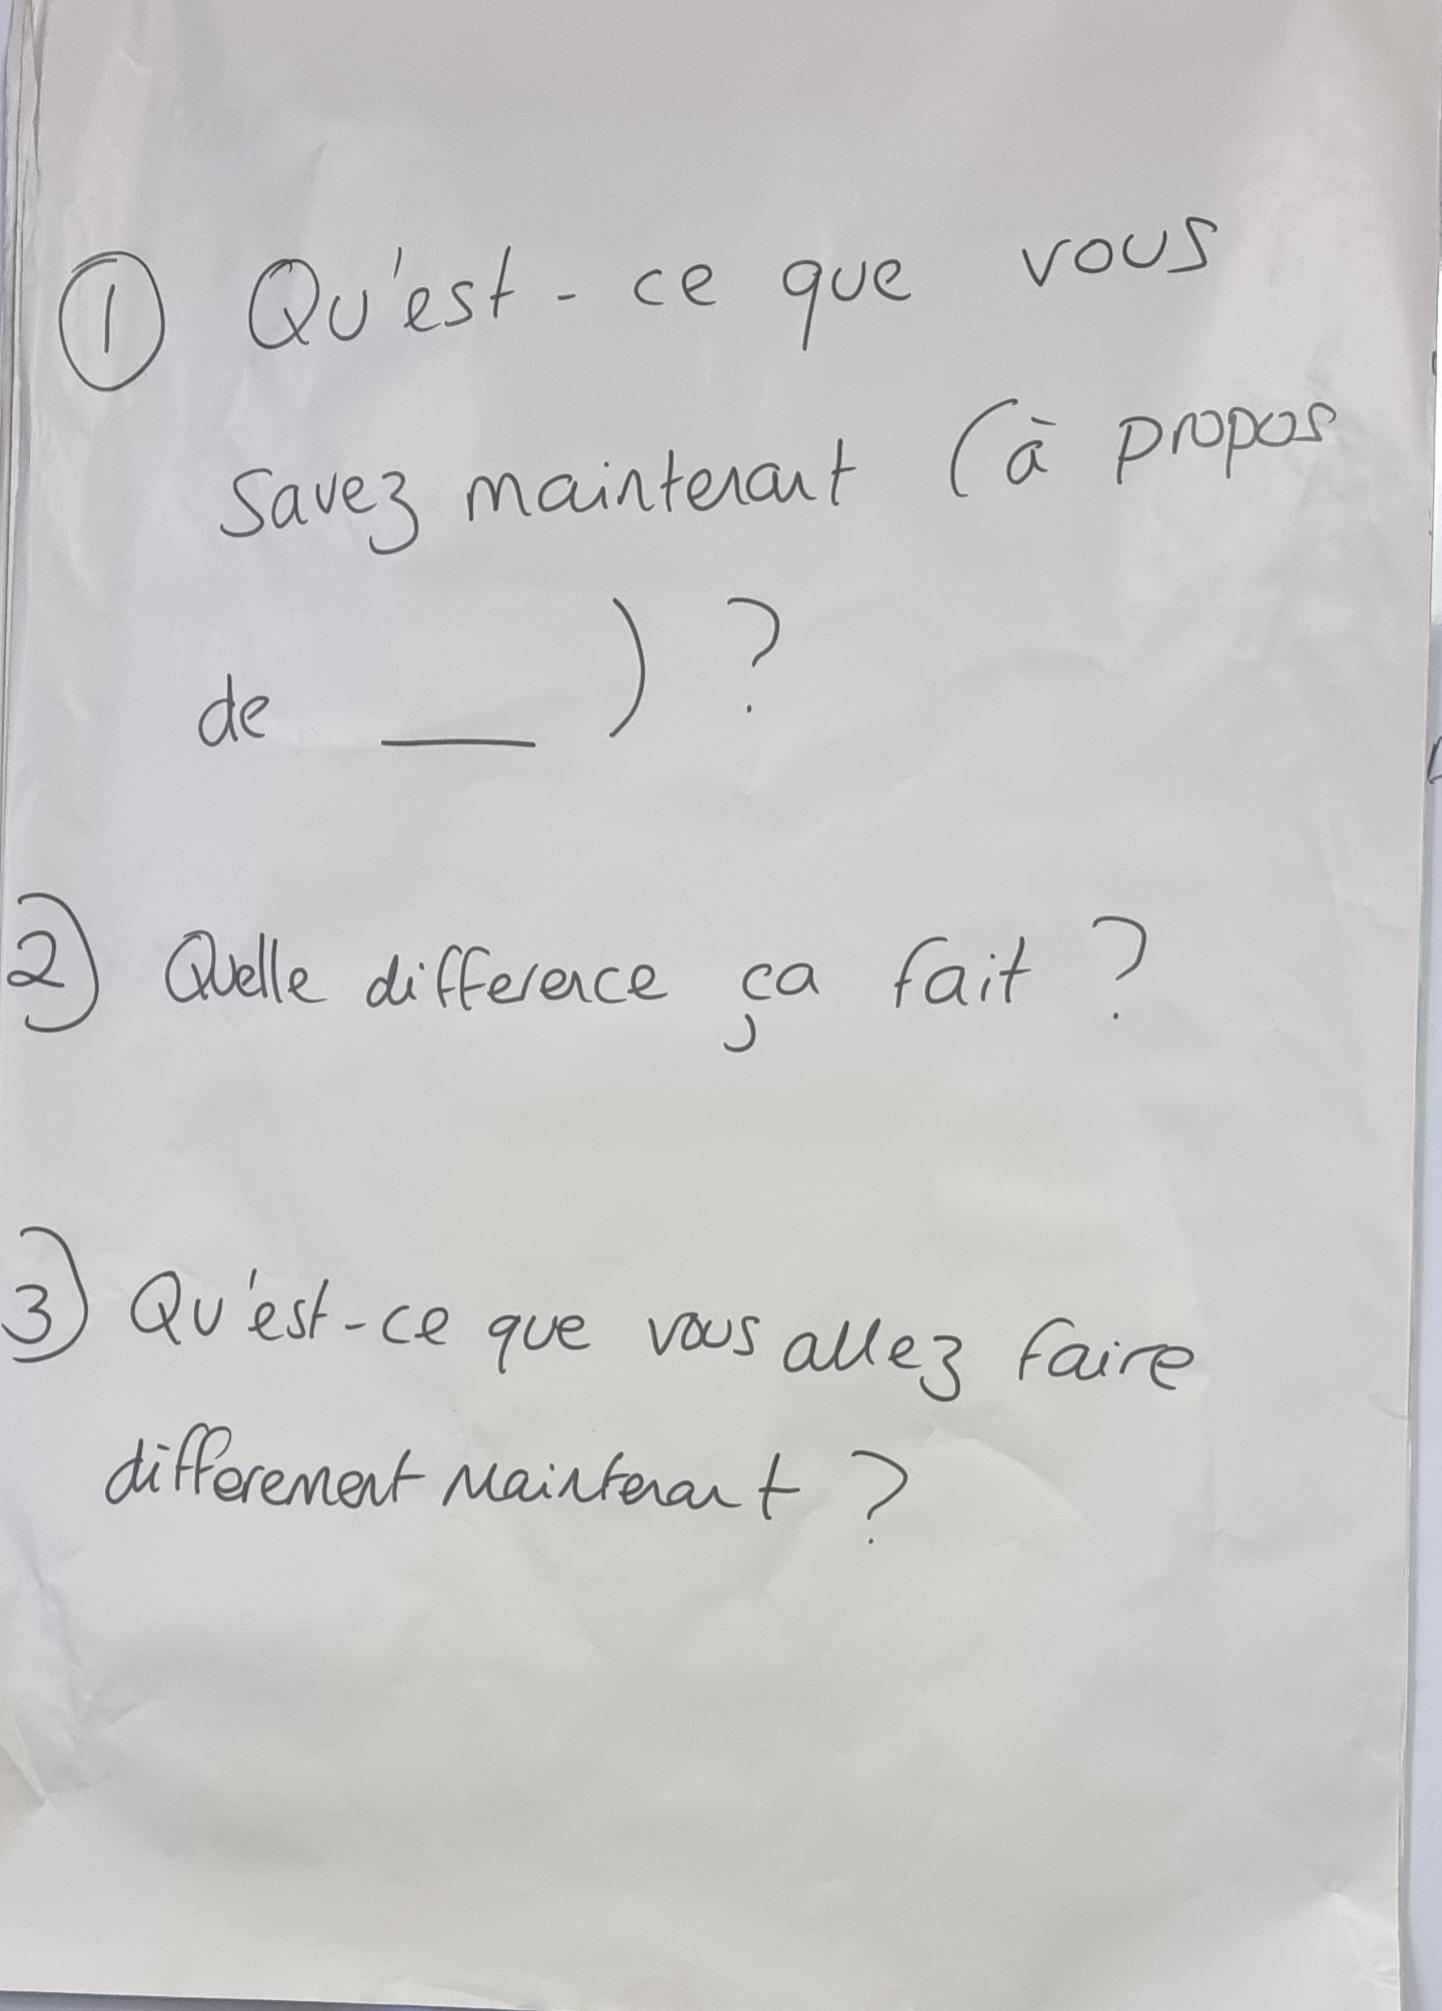 ① Qu'est-ce que vous
savez maintenant (à propos
de ___ ) ?
2) Quelle difference ça fait ?
3) Qu'est-ce que vous allez faire
differement maintenant ?